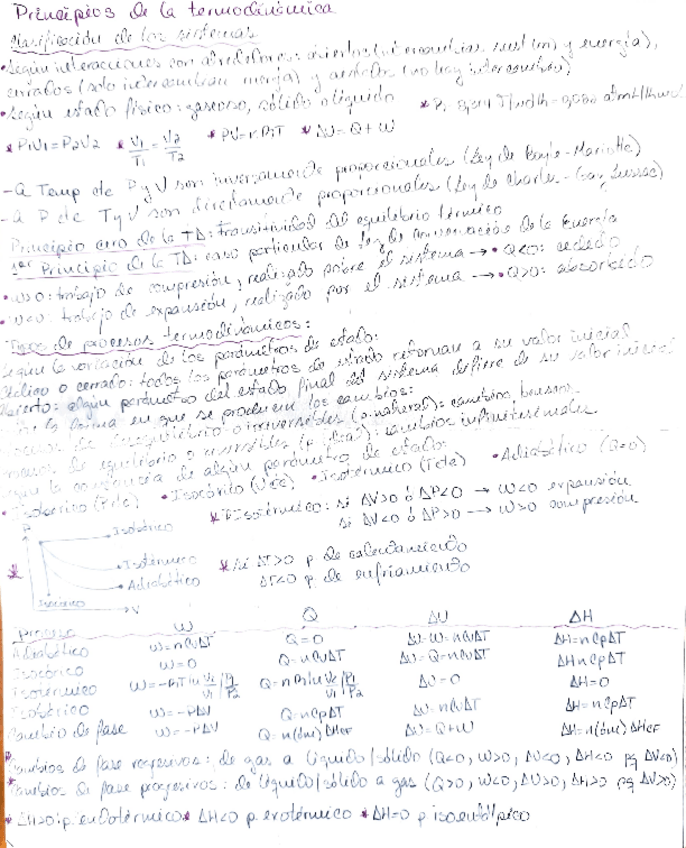 Principios de la termodinámica
Clasificación de los sistemas
•Según interacciones con alrededores: abiertos (intercambian sust (m) y energía),
cerrados (solo intercambian energía) y aislados (no hay intercambio)
•Según estado físico: gaseoso, sólido o líquido
* P1V1=P2V2 * V1/T1 = V2/T2 * PV=nRT * ΔU=Q+W
-a Temp cte P y V son inversamente proporcionales (Ley de Boyle-Mariotte)
-a P cte T y V son directamente proporcionales (Ley de Charles-Gay Lussac)
Principio cero de la TD: transitividad del equilibrio térmico
1er Principio de la TD: caso particular de ley de conservación de la Energía
•W>0: trabajo de compresión, realizado sobre el sistema → •Q<0: cedido
•W<0: trabajo de expansión, realizado por el sistema → •Q>0: absorbido
Tipos de procesos termodinámicos:
Según la variación de los parámetros de estado:
Cíclico o cerrado: todos los parámetros de estado retornan a su valor inicial
Abierto: algún parámetro del estado final del sistema difiere de su valor inicial
la forma en que se producen los cambios:
de equilibrio o reversibles: cambios infinitesimales
Según la constancia de algún parámetro de estado:
•Isobárico (P cte) •Isocórico (V cte) •Isotérmico (T cte) •Adiabático (Q=0)
* P isotérmico: si ΔV>0 ó ΔP<0 → W<0 expansión
si ΔV<0 ó ΔP>0 → W>0 compresión
P
Isobárico
Isotérmico
Adiabático
Isocórico
V
* si ΔT>0 p. de calentamiento
ΔT<0 p. de enfriamiento
Proceso W Q ΔU ΔH
Adiabático W=nCvΔT Q=0 ΔU=W=nCvΔT ΔH=nCpΔT
Isocórico W=0 Q=nCvΔT ΔU=Q=nCvΔT ΔH=nCpΔT
Isotérmico ΔU=0 ΔH=0
Isobárico W=-PΔV Q=nCpΔT ΔU=nCvΔT ΔH=nCpΔT
Cambio de fase W=-PΔV Q=n(ó m)ΔHCF ΔU=Q+W ΔH=n(ó m)ΔHCF
*Cambios de fase regresivos: de gas a líquido/sólido (Q<0, W>0, ΔU<0, ΔH<0 pq ΔV<0)
*Cambios de fase progresivos: de líquido/sólido a gas (Q>0, W<0, ΔU>0, ΔH>0 pq ΔV>0)
* ΔH>0 p. endotérmico * ΔH<0 p. exotérmico * ΔH=0 p isoentálpico